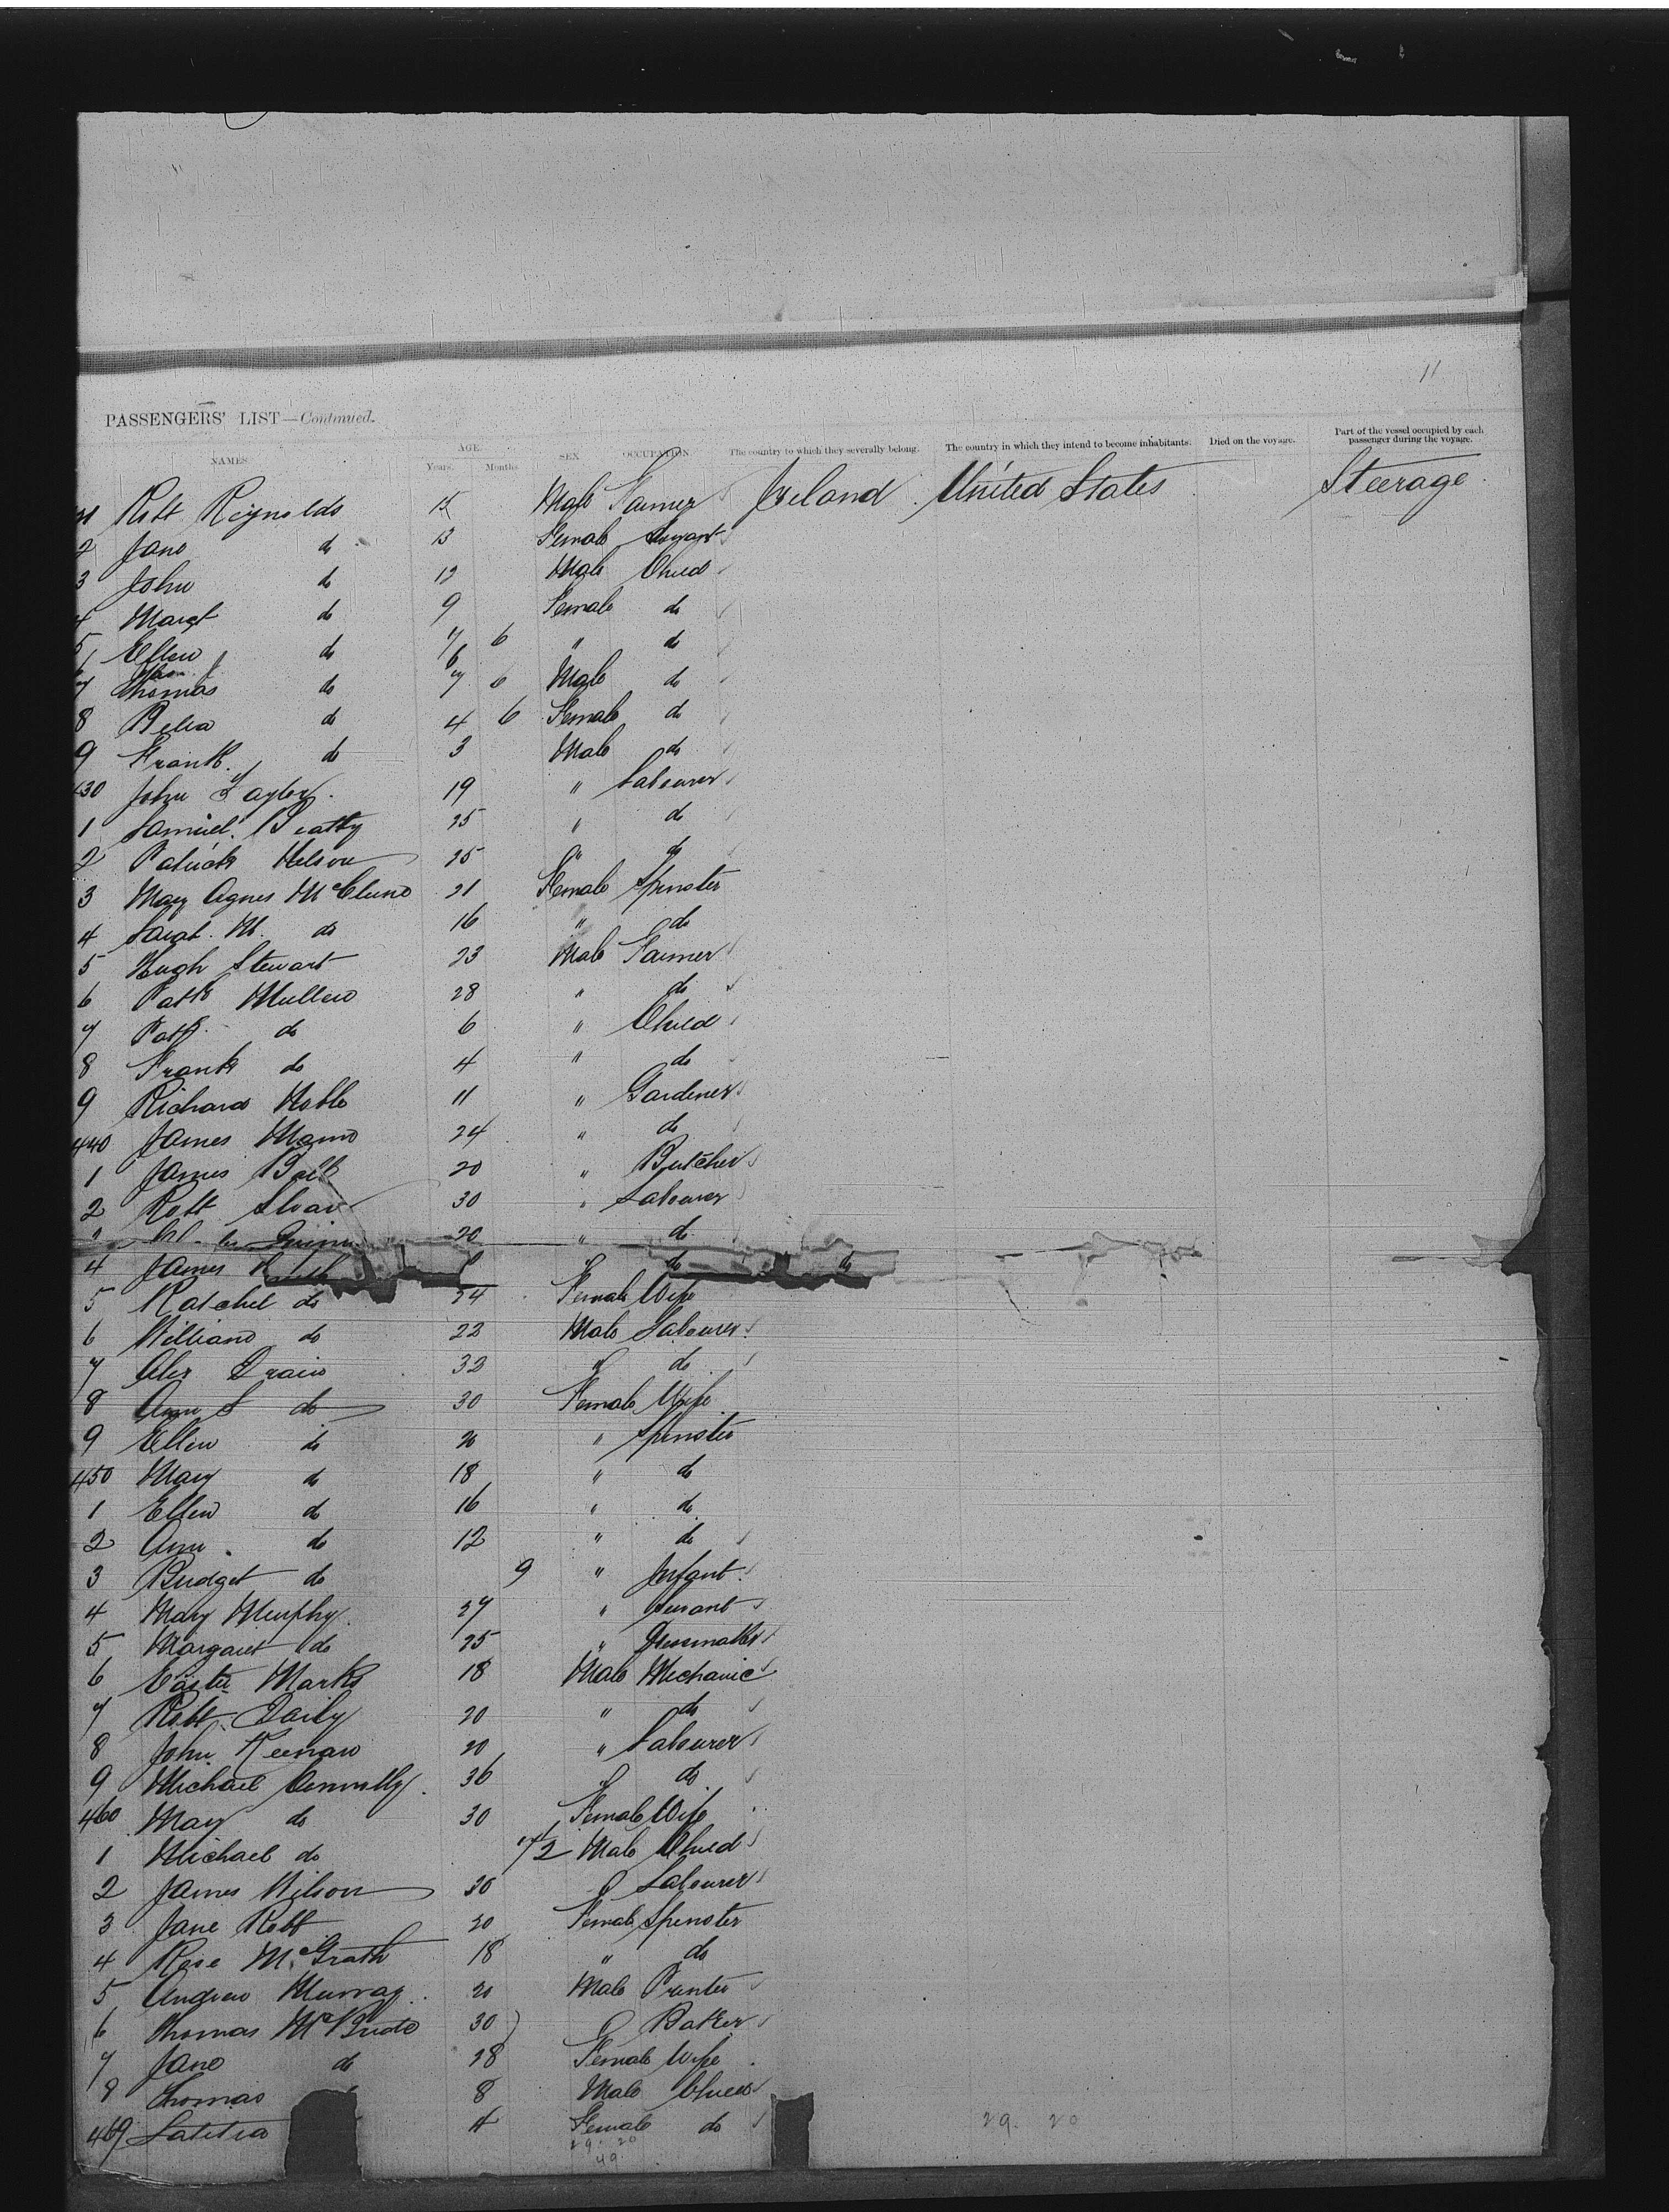 11
PASSENGERS' LIST—Continued.
NAMES. AGE. Years. Months SEX OCCUPATION The country to which they severally belong. The country in which they intend to become inhabitants. Died on the voyage. Part of the vessel occupied by each passenger during the voyage.
21 Robt Reynolds 15 Male Farmer Ireland United States Steerage
2 Jane do 13 Female Servant
3 John do 12 Male Child
4 Margt do 9 Female do
5 Ellen do 7 6 " do
7 Thomas do 7 6 Male do
8 Delia do 4 6 Female do
9 Frank do 3 Male do
430 John Taylor 19 " Labourer
1 Samuel Beatty 25 " do
2 Patrick Nelson 25 " do
3 Mary Agnes McClune 21 Female Spinster
4 Sarah M. do 16 " do
5 Hugh Stewart 23 Male Farmer
6 Patk Mullen 28 " do
7 Patk do 6 " Child
8 Frank do 4 " do
9 Richard Noble 11 " Gardener
440 James Mann 24 " do
1 James Bell 20 " Butcher
2 Robt Sloan 30 " Labourer
Quinn 20 " do
4 James do
5 Ratchel do 24 Female Wife
6 William do 22 Male Labourer
7 Alex Drain 32 " do
8 Ann S do 30 Female Wife
9 Ellen do 20 " Spinster
450 Mary do 18 " do
1 Ellen do 16 " do
2 Ann do 12 " do
3 Bridget do 9 " Infant
4 Mary Murphy 27 " Servant
5 Margaret do 25 " Dressmaker
6 Marks 18 Male Mechanic
7 Robt Daily 20 " do
8 John Keenan 20 " Labourer
9 Michael Connolly 36 " do
460 Mary do 30 Female Wife
1 Michael do Male Child
2 James Wilson 30 " Labourer
3 Jane Robb 20 Female Spinster
4 Rose McGrath 18 " do
5 Andrew Murray 20 Male Printer
6 Thomas McBride 30 " Baker
7 Jane do 28 Female Wife
8 Thomas 8 Male Child
469 Latitia 4 Female do
29. 20
49
29. 20